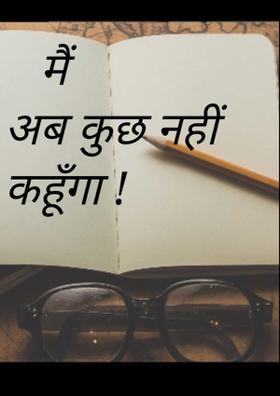 मैं
अब कुछ नहीं
कहूँगा !